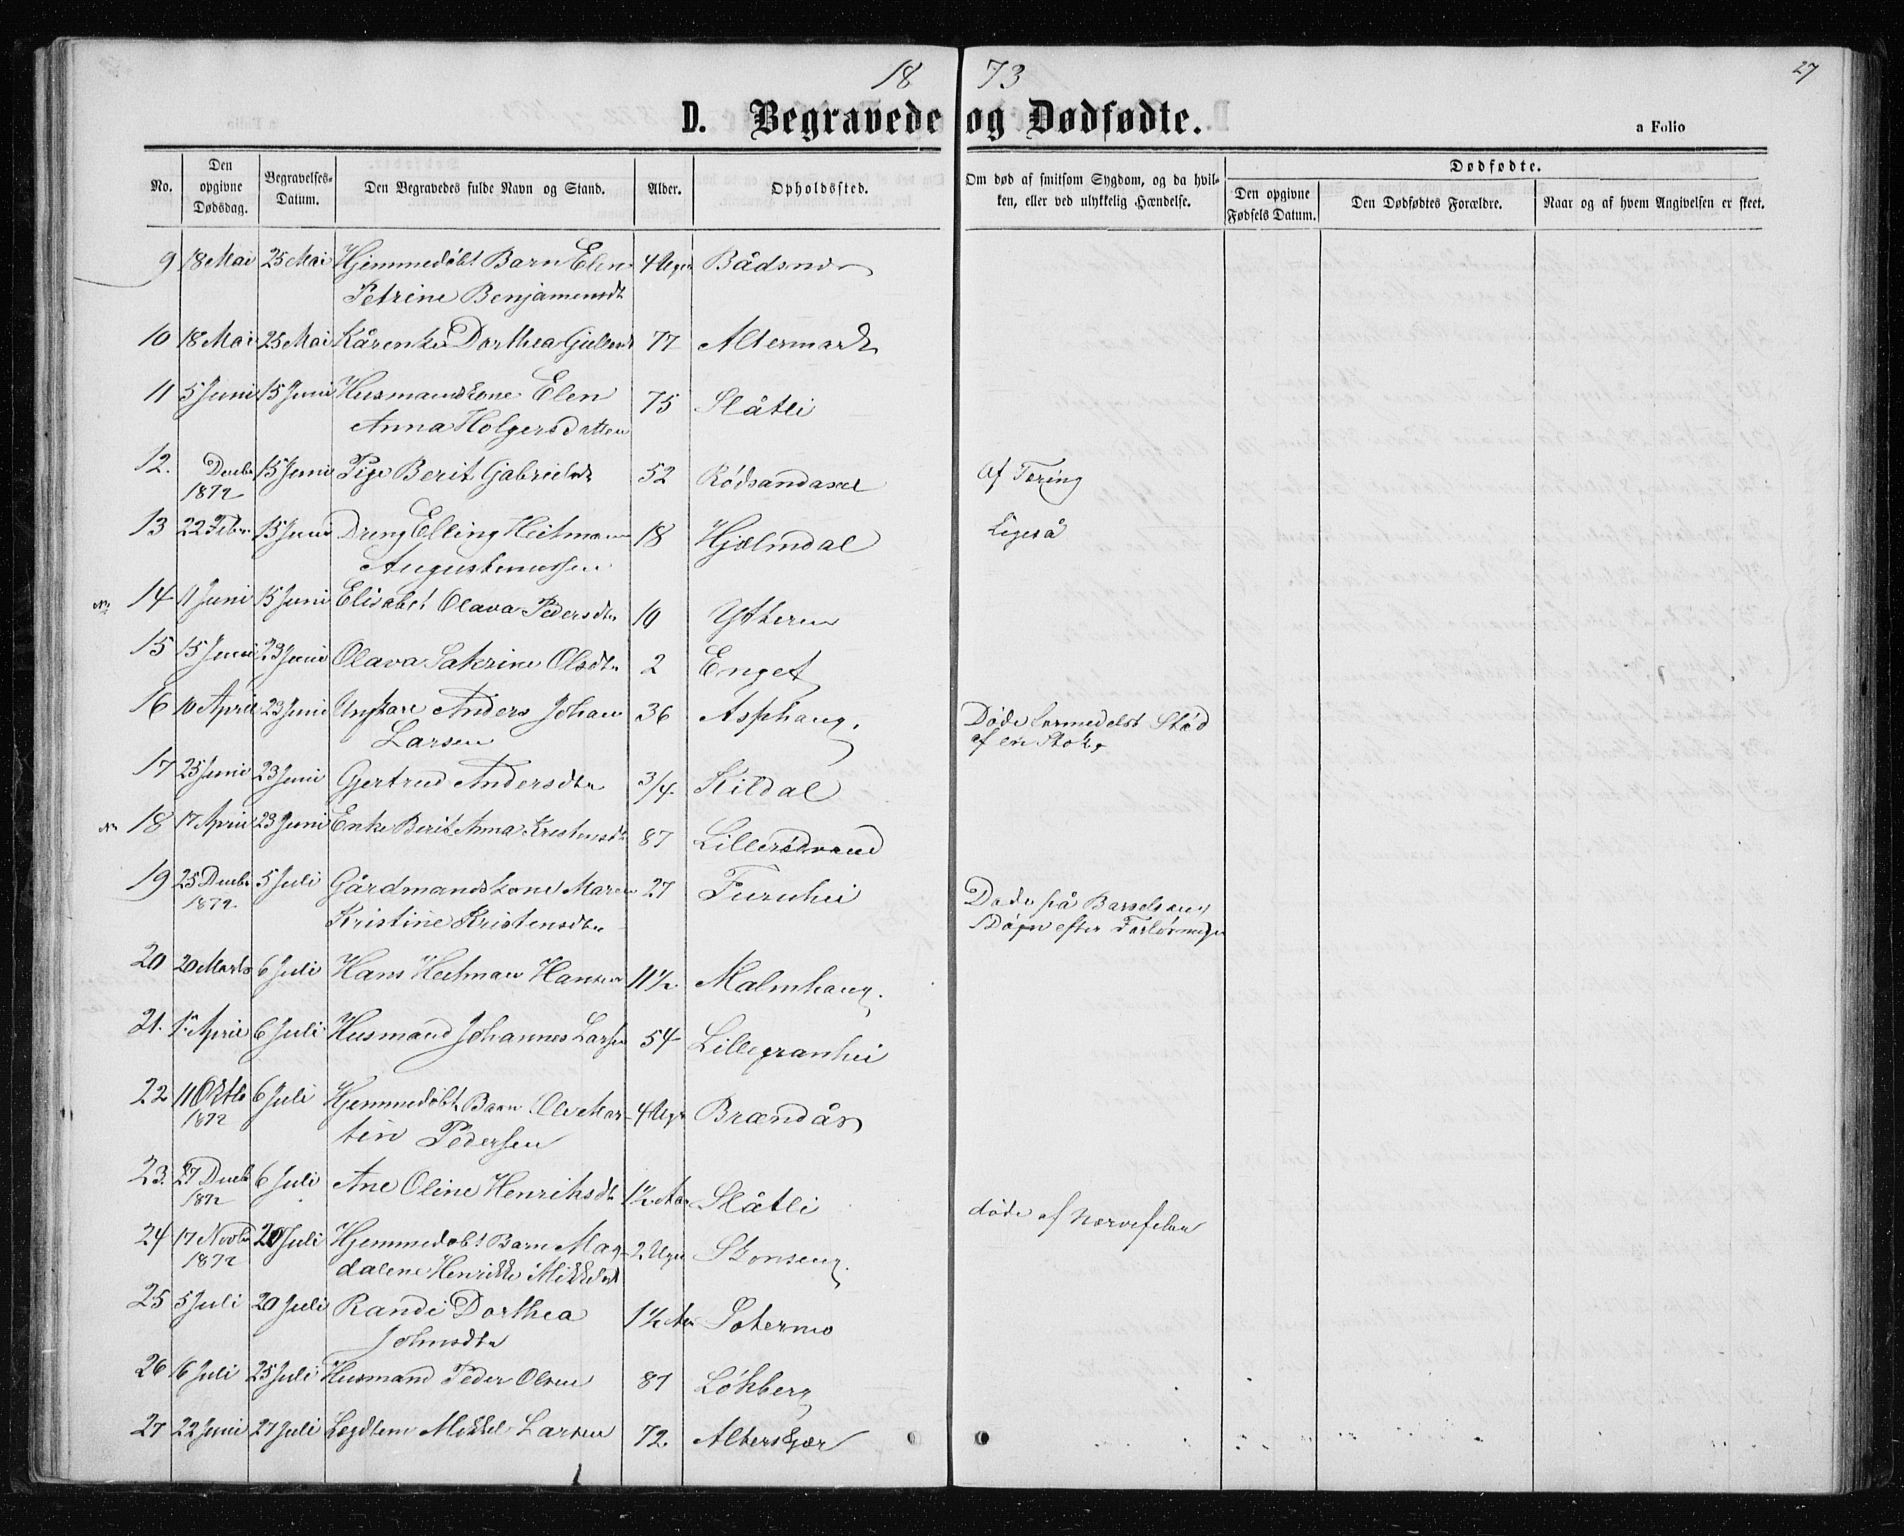 18 73 27
D. Begravede og Dødfødte.
a Folio
No. Den opgivne Dødsdag. Begravelses-Datum. Den Begravedes fulde Navn og Stand. Alder. Opholdssted. Om død af smitsom Sygdom, og da hvilken, eller ved ulykkelig Hændelse. Dødfødte. Den opgivne Fødsels Datum. Den Dødfødtes Forældre. Naar og af hvem Angivelsen er skeet.
9 18 Mai 25 Mai Hjemmedøbt Barn Elen 4 Uger
Petrine Benjamensdt
10 18 Mai 25 Mai Kårenke Dorthea 77 Altermark
11 5 Juni 15 Juni Husmandskone Elen 75 Slåtli
Anna Holgersdatter
12. Decbr 15 Juni Pige Berit Gabrielsdt 52 Rødsandaxel Af Tæring
1872
13 22 Febr 15 Juni Dreng Elling Heitmann 18 Hjelmdal Ligeså
Augustinussen
14 1 Juni 15 Juni Elisabet Olava Pedersdtr 10 Ytheren
15 15 Juni 23 Juni Olava Katrine Olsdtr 2 Enget
16 10 April 23 Juni Ungkare Anders Johan 36 Asphaug. Døde formedelst Stød
Larsen af en Stok
17 25 Juni 23 Juni Gjertrud Andersdtr 3/4 Kildal
18 17 April 23 Juni Enke Berit Anna Kristensdtr 87
19 25 Decbr 5 Juli Gårdmandskone Maren 27 Furuhei Døde på Barselseng
1872 Kristine Kristensdtr Døgn efter
20 20 Marts 6 Juli Hans Heitman Hansen 11½ Malmhaug.
21. April 6 Juli Husmand Johannes Larsen 54 Lillegranhei
22 11 Oktb 6 Juli Hjemmedøbt Barn Ole Mar- 4 Uger Brændås
1872 tin Pedersen
23. 27 Decb 6 Juli Ane Oline Henriksdt 1½ Aar Slåtli
1872
24 17 Novbr 20 Juli Hjemmedøbt Barn Mag- 2 Uger Skonseng. døde af Nervefeber
1872 dalene Henrikke Mikkelsdt
25 5 Juli 20 Juli Randi Dorthea 1½ Aar Sotermo
Johnsdtr
26 16 Juli 25 Juli Husmand Peder Olsen 87 Løkberg
27 22 Juni 27 Juli Lægdlem Mikkel Larsen 72. Alterskjær